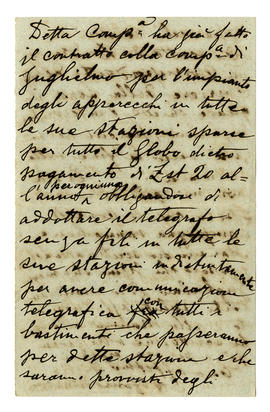 Detta Comp.a ha già fatto
il contratto colla comp.a di
Guglielmo per l'impianto
degli apparecchi in tutte
le sue stazioni sparse
per tutto il Globo dietro
pagamento di Lst 20 al-
l'anno per ognuna obbligandosi di
addottare il telegrafo
senza fili in tutte le
sue stazioni indistintamente
per avere comunicazione
telegrafica con tutti i
bastimenti che passeranno
per dette stazioni e che
saranno provvisti degli